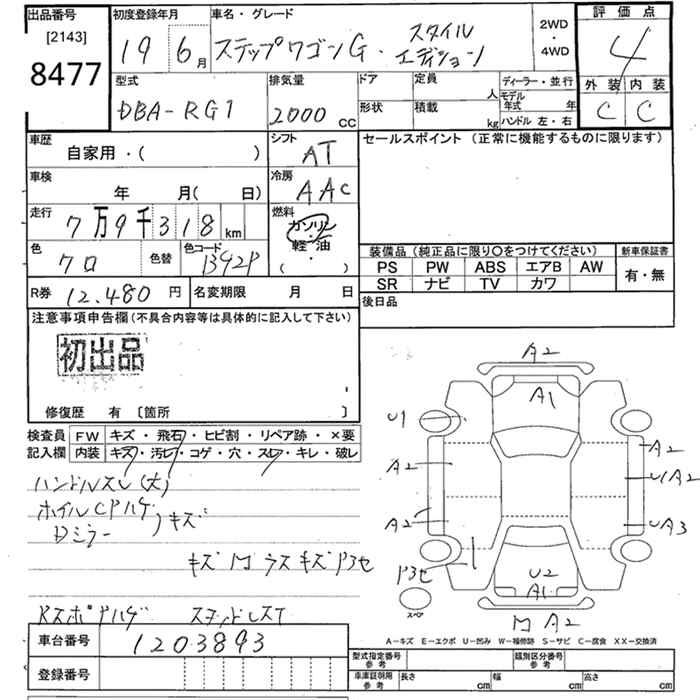 出品番号 [2143] 8477
初度登録年月 19 6月
車名・グレード ステップワゴンG・スタイルエディション
2WD・4WD
評価点 4
外装 内装
C C
型式 DBA-RG1
排気量 2000 cc
ドア 形状
定員 人
積載 kg
ディーラー・並行
モデル年式 年
ハンドル 左・右
車歴 自家用・( )
シフト AT
セールスポイント (正常に機能するものに限ります)
車検 年 月( 日)
冷房 AAC
走行 7万9千318km
燃料 ガソリン・軽油・( )
色 クロ 色替 色コード B92P
装備品(純正品に限り〇をつけてください)
新車保証書 有・無
PS PW ABS エアB AW
SR ナビ TV カワ
R券 12.480円 名変期限 月 日
後日品
注意事項申告欄(不具合内容等は具体的に記入して下さい)
初出品
修復歴 有 〔箇所 〕
検査員記入欄
FW キズ・飛石・ヒビ割・リペア跡・×要
内装 キズ・汚レ・コゲ・穴・スレ・キレ・破レ
ハンドルスレ(大)
ホイルCPハゲ
Dミラー キズ
A2
A1
U1
A2
A2
U1A2
A2
UA3
U2
A1
A2
スペア
A-キズ E-エクボ U-凹み W-補修跡 S-サビ C-腐食 XX-交換済
車台番号 1203893
登録番号
型式指定番号 参考
類別区分番号 参考
車庫証明用 参考 長さ cm 幅 cm 高さ cm